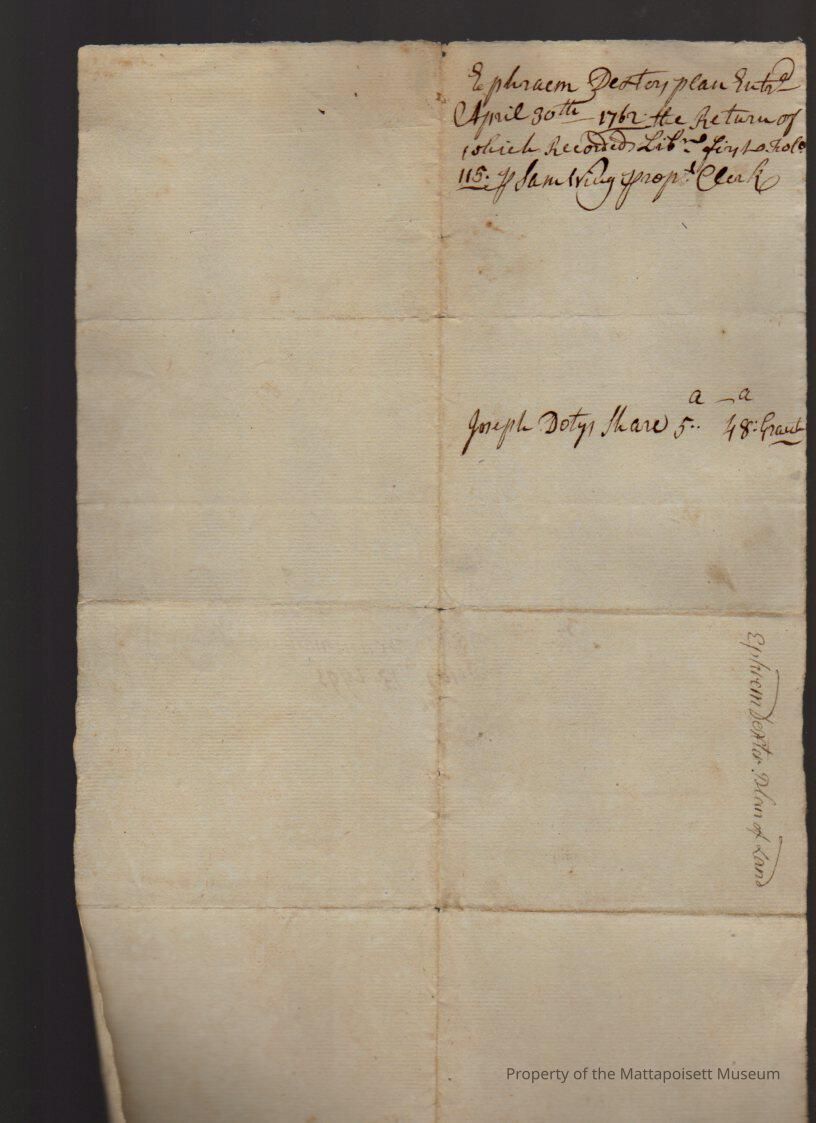 Ephraem Dextors plan Entrd
April 30th 1762 the Return of
which Recorded Libr first folo
115. p Sam Wing propts Clerk
a — a
Joseph Dotys Share 5.. 48: Grant
Ephraem Dextor Plan of Land
Property of the Mattapoisett Museum